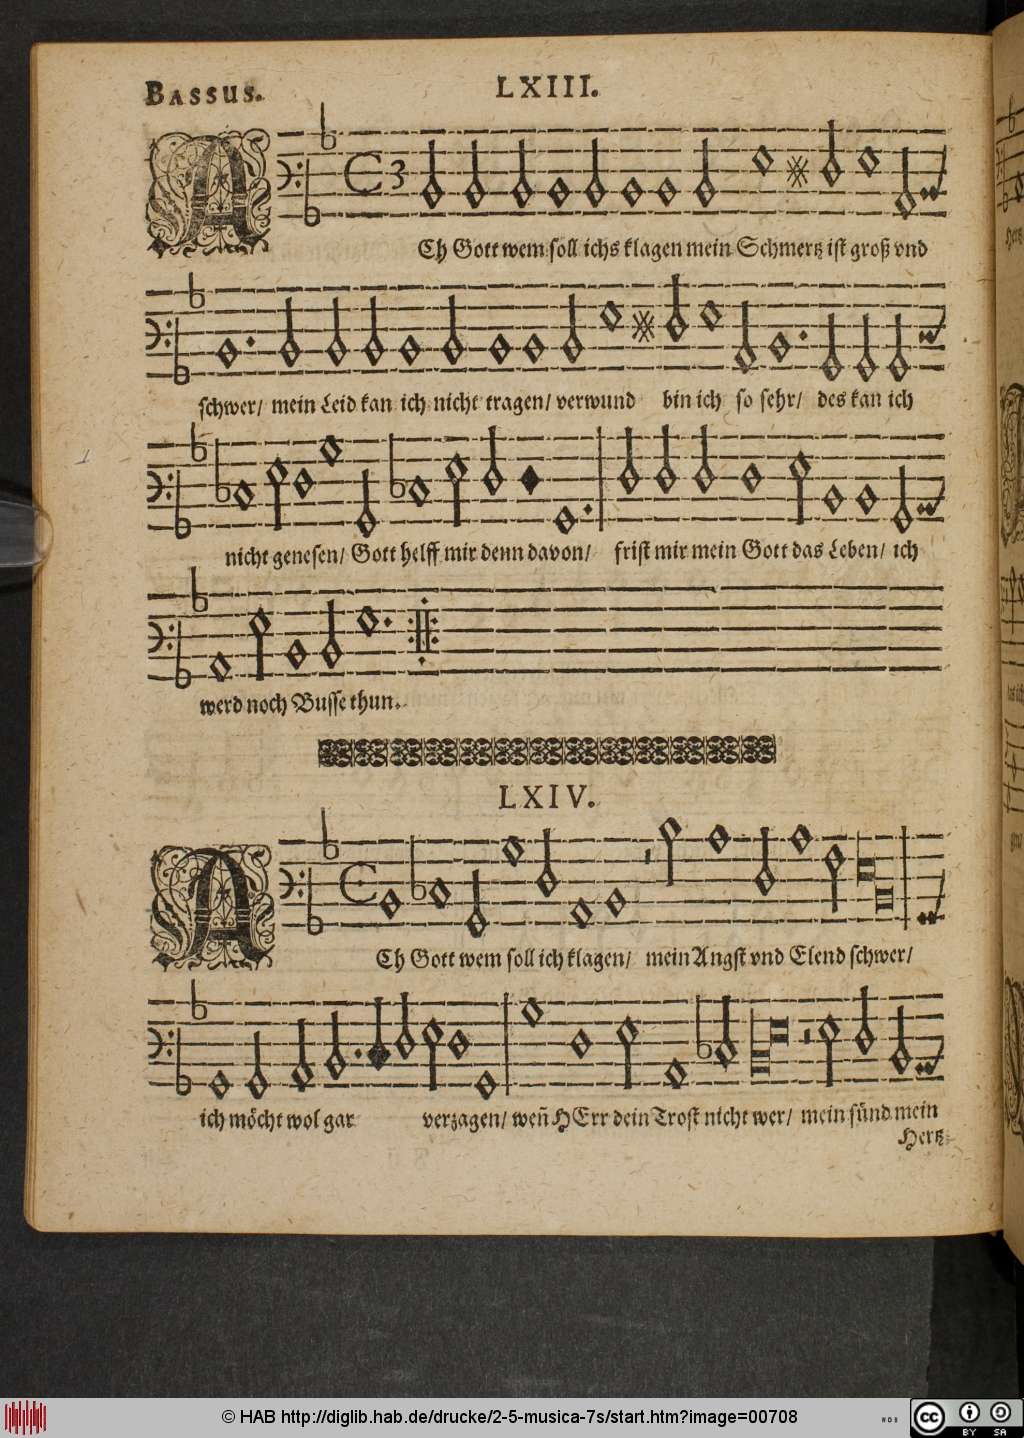 BASSUS.
LXIII.
ACh Gott wem soll ichs klagen mein Schmertz ist groß vnd
schwer/ mein Leid kan ich nicht tragen/ verwund bin ich so sehr/ des kan ich
nicht genesen/ Gott helff mir denn davon/ frist mir mein Gott das Leben/ ich
werd noch Busse thun.
LXIV.
ACh Gott wem soll ich klagen/ mein Angst vnd Elend schwer/
ich möcht wol gar verzagen/ weñ HErr dein Trost nicht wer/ mein sünd mein
Hertz
© HAB http://diglib.hab.de/drucke/2-5-musica-7s/start.htm?image=00708
WDB
cc BY SA